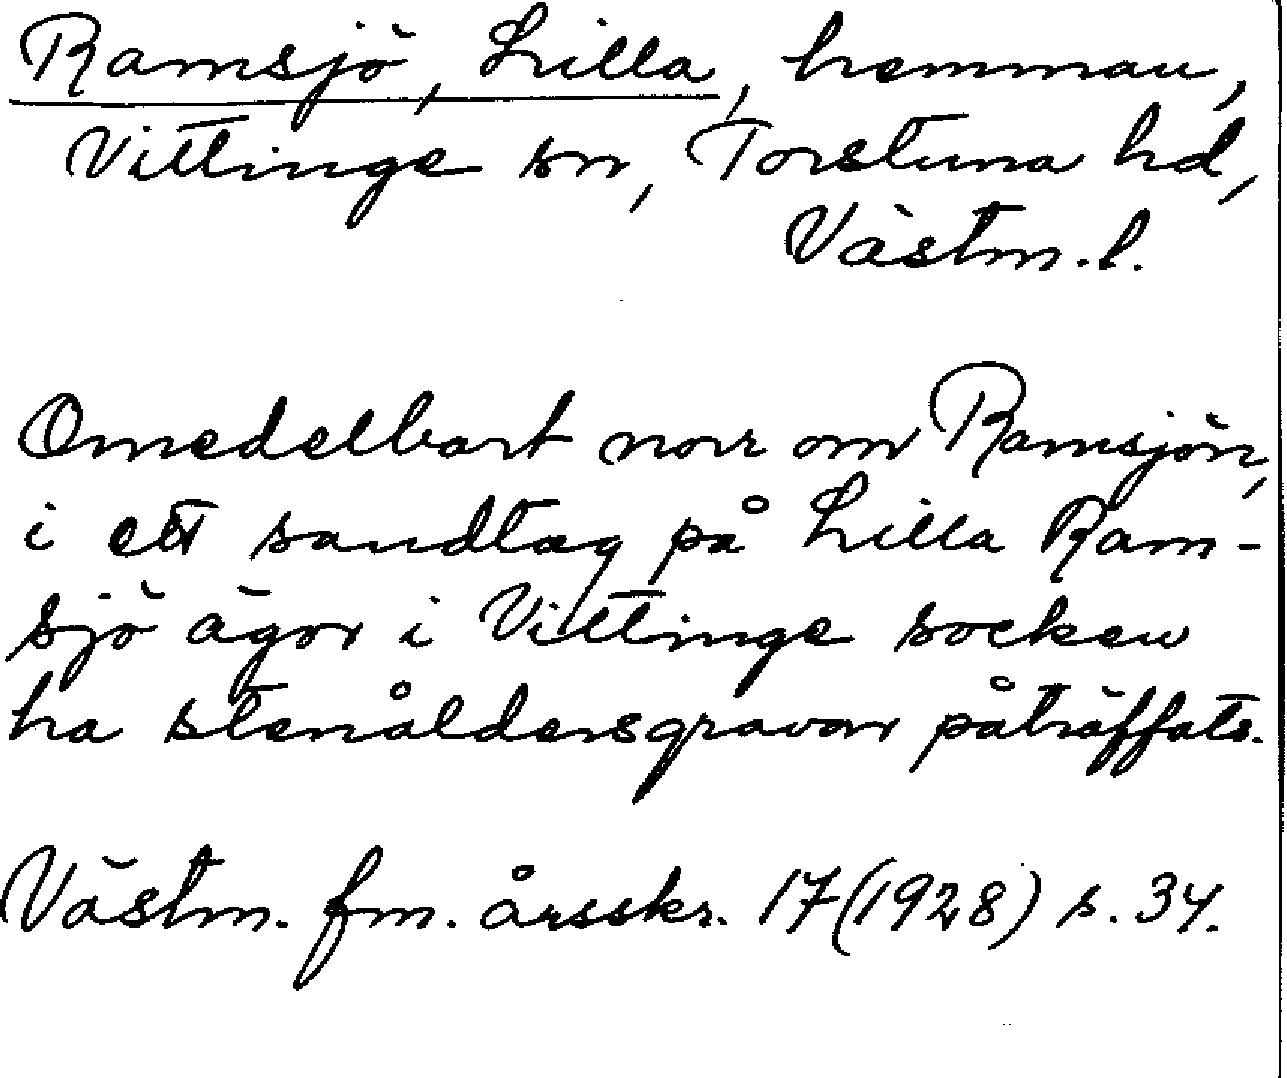 Ramsjö, Lilla, hemman,
Vittinge sn, Torstuna hd,
Västm. l.
Omedelbart norr om Ramsjön,
i ett sandtag på Lilla Ram-
sjö ägor i Vittinge socken
ha stenåldersgravar påträffats.
Västm. fm. årsskr. 17 (1928) s. 34.